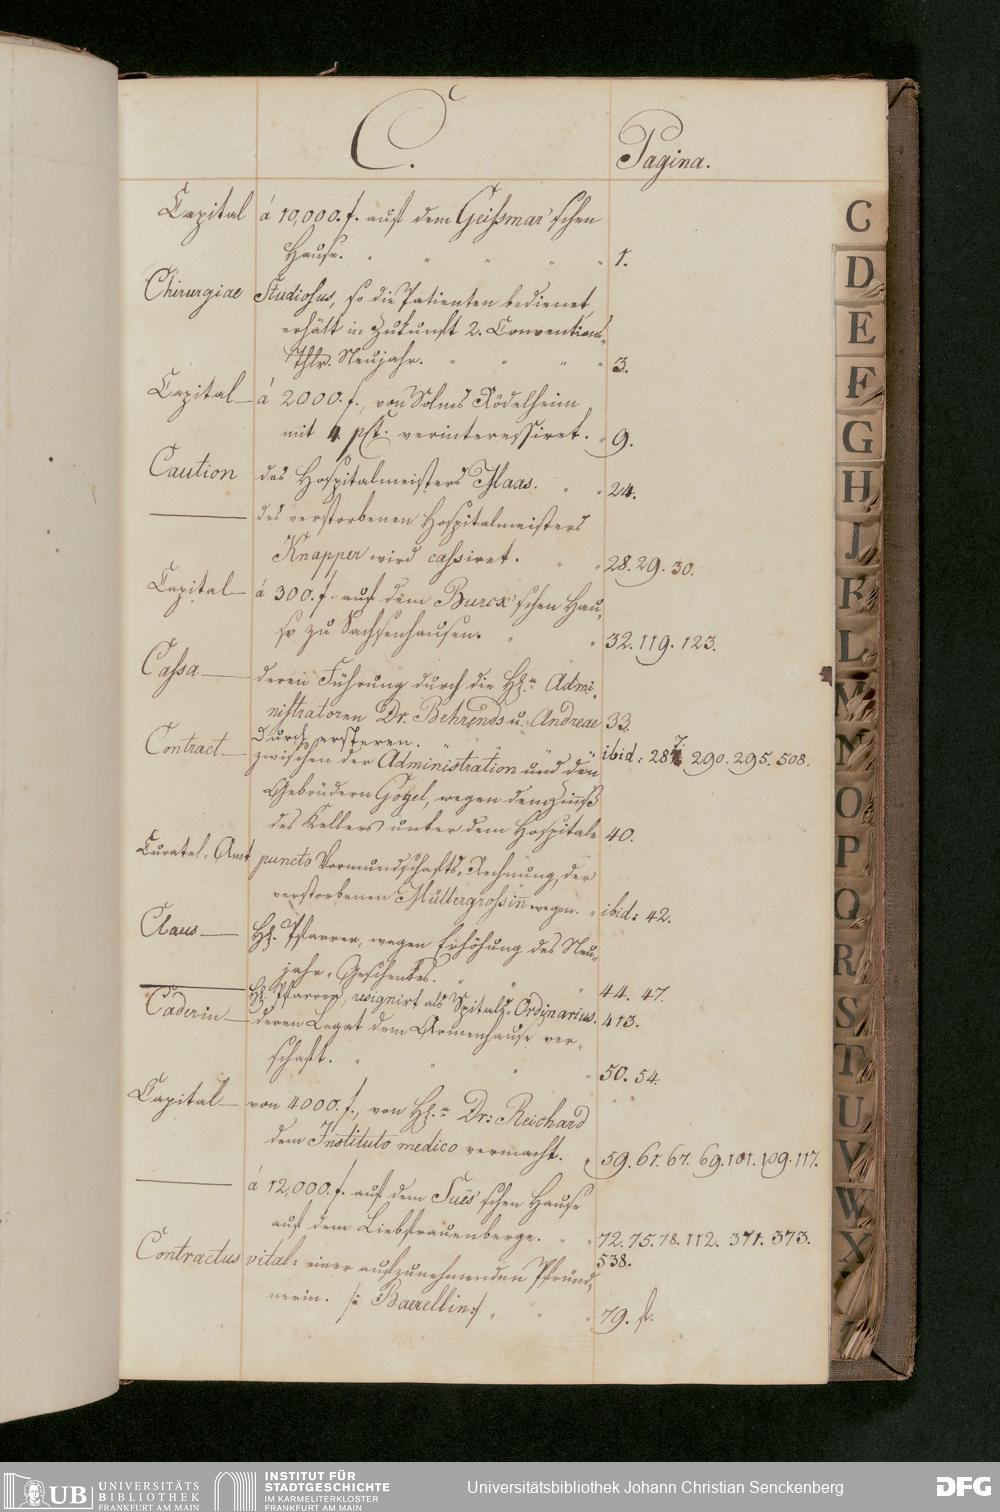 C.
Pagina.
Capital á 10,000. f. auf dem Geißmar'schen
Hause. " " " " " 1.
Chirurgiae Studiosus, so die Patienten bedienet,
erhält in Zukunft 2. Conventions-
Thlr. Neujahr. " " " " 3.
Capital — á 2000. f., von Solms Rödelheim
mit 4 pCt. verinteressiret. " 9.
Caution des Hospitalmeisters Maas. " " 24.
— des verstorbenen Hospitalmeisters
Knapper wird cassiret. " " 28. 29. 30.
Capital — á 300. f. auf dem Burck'schen Hau-
se zu Sachsenhausen. " " 32. 119. 123.
Cassa — deren Führung durch die HH.n Admi-
nistratoren Dr. Behrends u. Andreae 33.
Durch ersteren. " " " ibid: 287. 290. 295. 508.
Contract — zwischen der Administration und den
Gebrüdern Gogel, wegen dem Zinnß
des Kellers unter dem Hospitale 40.
Curatel-Amt puncto Vormundschafts-Rechnung, der
verstorbenen Müllergroßin wegen. " ibid: 42.
Claus — H. Pfarrer, wegen Erhöhung des Neu-
jahr-Geschenkes. " " " 44. 47.
— H. Pfarrer, resignirt als Spitals-Ordinarius. 413.
Caderin — deren Legat dem Armenhause ver-
schafft. " " " " 50. 54.
Capital — von 4000. f., von H.n Dr: Reichard
dem Instituto medico vermacht. " 59. 61. 67. 69. 101. 109. 117.
— á 12,000. f. auf dem Suës'schen Hause
auf dem Liebfrauenberge. " " 72. 75. 78. 112. 371. 373.
538.
Contractus vital: einer aufzunehmenden Pfründ-
nerin. /: Baerellin :/ " " " 79.
C
D
E
F
G
H
J
K
L
M
N
O
P
Q
R
S
T
U
V
W
X
UB
UNIVERSITÄTS
BIBLIOTHEK
FRANKFURT AM MAIN
INSTITUT FÜR
STADTGESCHICHTE
IM KARMELITERKLOSTER
FRANKFURT AM MAIN
Universitätsbibliothek Johann Christian Senckenberg
DFG